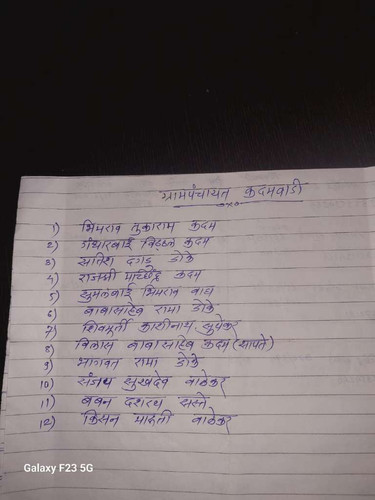 ग्रामपंचायत कदमवाडी
1) भिमराव तुकाराम कदम
2) गंधारबाई विठ्ठल कदम
3) सतिश दगडु डोके
4) राजश्री मच्छिंद्र कदम
5) सुमनबाई भिमराव वाघ
6) बाबासाहेब रामा डोके
7) शिवमूर्ती काशीनाथ सुपेकर
8) विलास बाबासाहेब कदम (सापते)
9) भागवत रामा डोके
10) संजय सुखदेव वाळेकर
11) बबन दशरथ सस्ते
12) किसन मारुती वाळेकर
Galaxy F23 5G